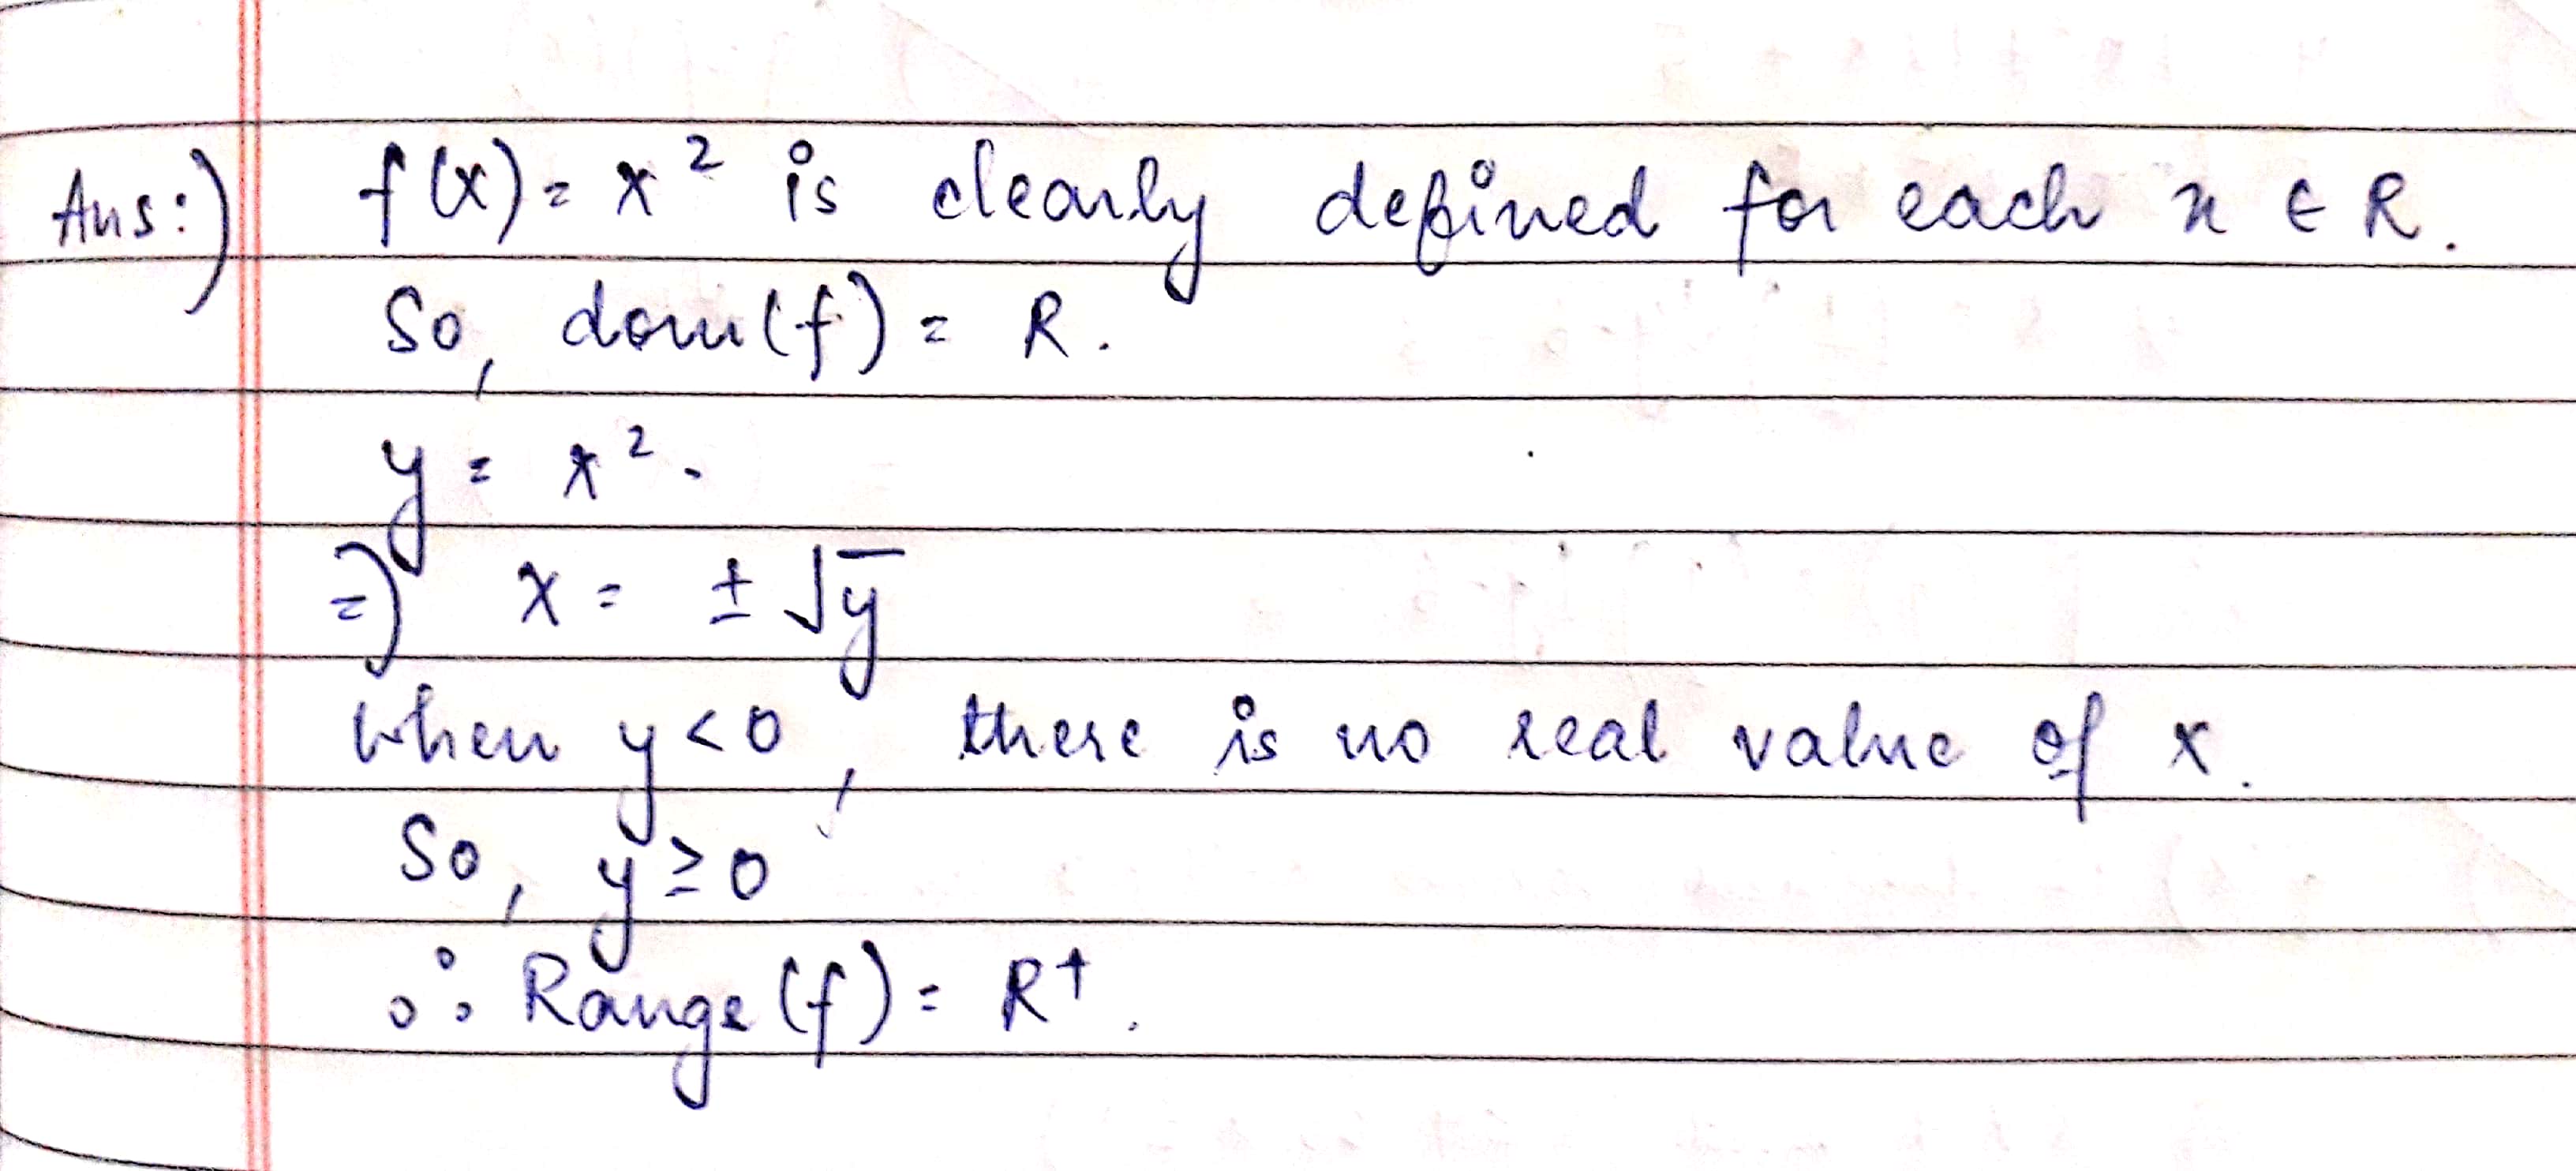 Ans:) f(x) = x² is clearly defined for each x ∈ R.
So, dom(f) = R.
y = x².
=) x = ± √y
when y < 0, there is no real value of x.
So, y ≥ 0
∴ Range(f) = R⁺.